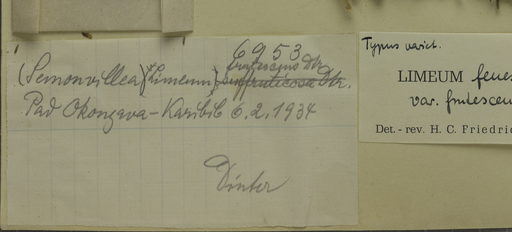 6953
frutescens Dtr.
(Semonvillea) (Limeum) suffruticosa Dtr.
Pad Okongava - Karibib 6.2.1934
Dinter
Typus variet.
LIMEUM fenes
var. frutescen
Det. - rev. H. C. Friedric